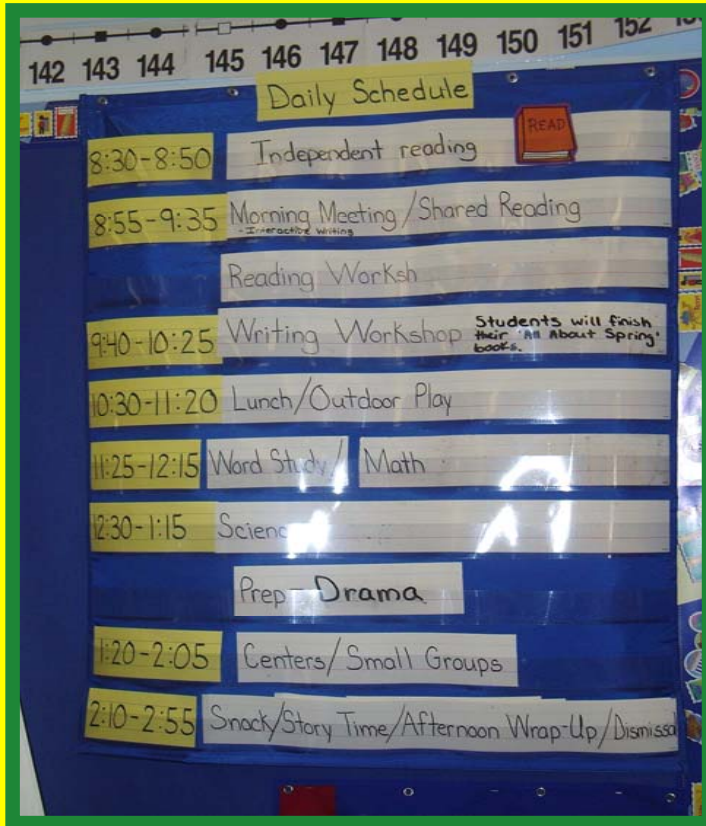 142 143 144 145 146 147 148 149 150 151 152
Daily Schedule
READ
8:30-8:50 Independent reading
8:55-9:35 Morning Meeting/Shared Reading
- Interactive Writing
Reading Worksh
9:40-10:25 Writing Workshop Students will finish
their 'All About Spring'
books.
10:30-11:20 Lunch/Outdoor Play
11:25-12:15 Word Study/ Math
12:30-1:15 Scienc
Prep - Drama
1:20-2:05 Centers/Small Groups
2:10-2:55 Snack/Story Time/Afternoon Wrap-Up/Dismissa